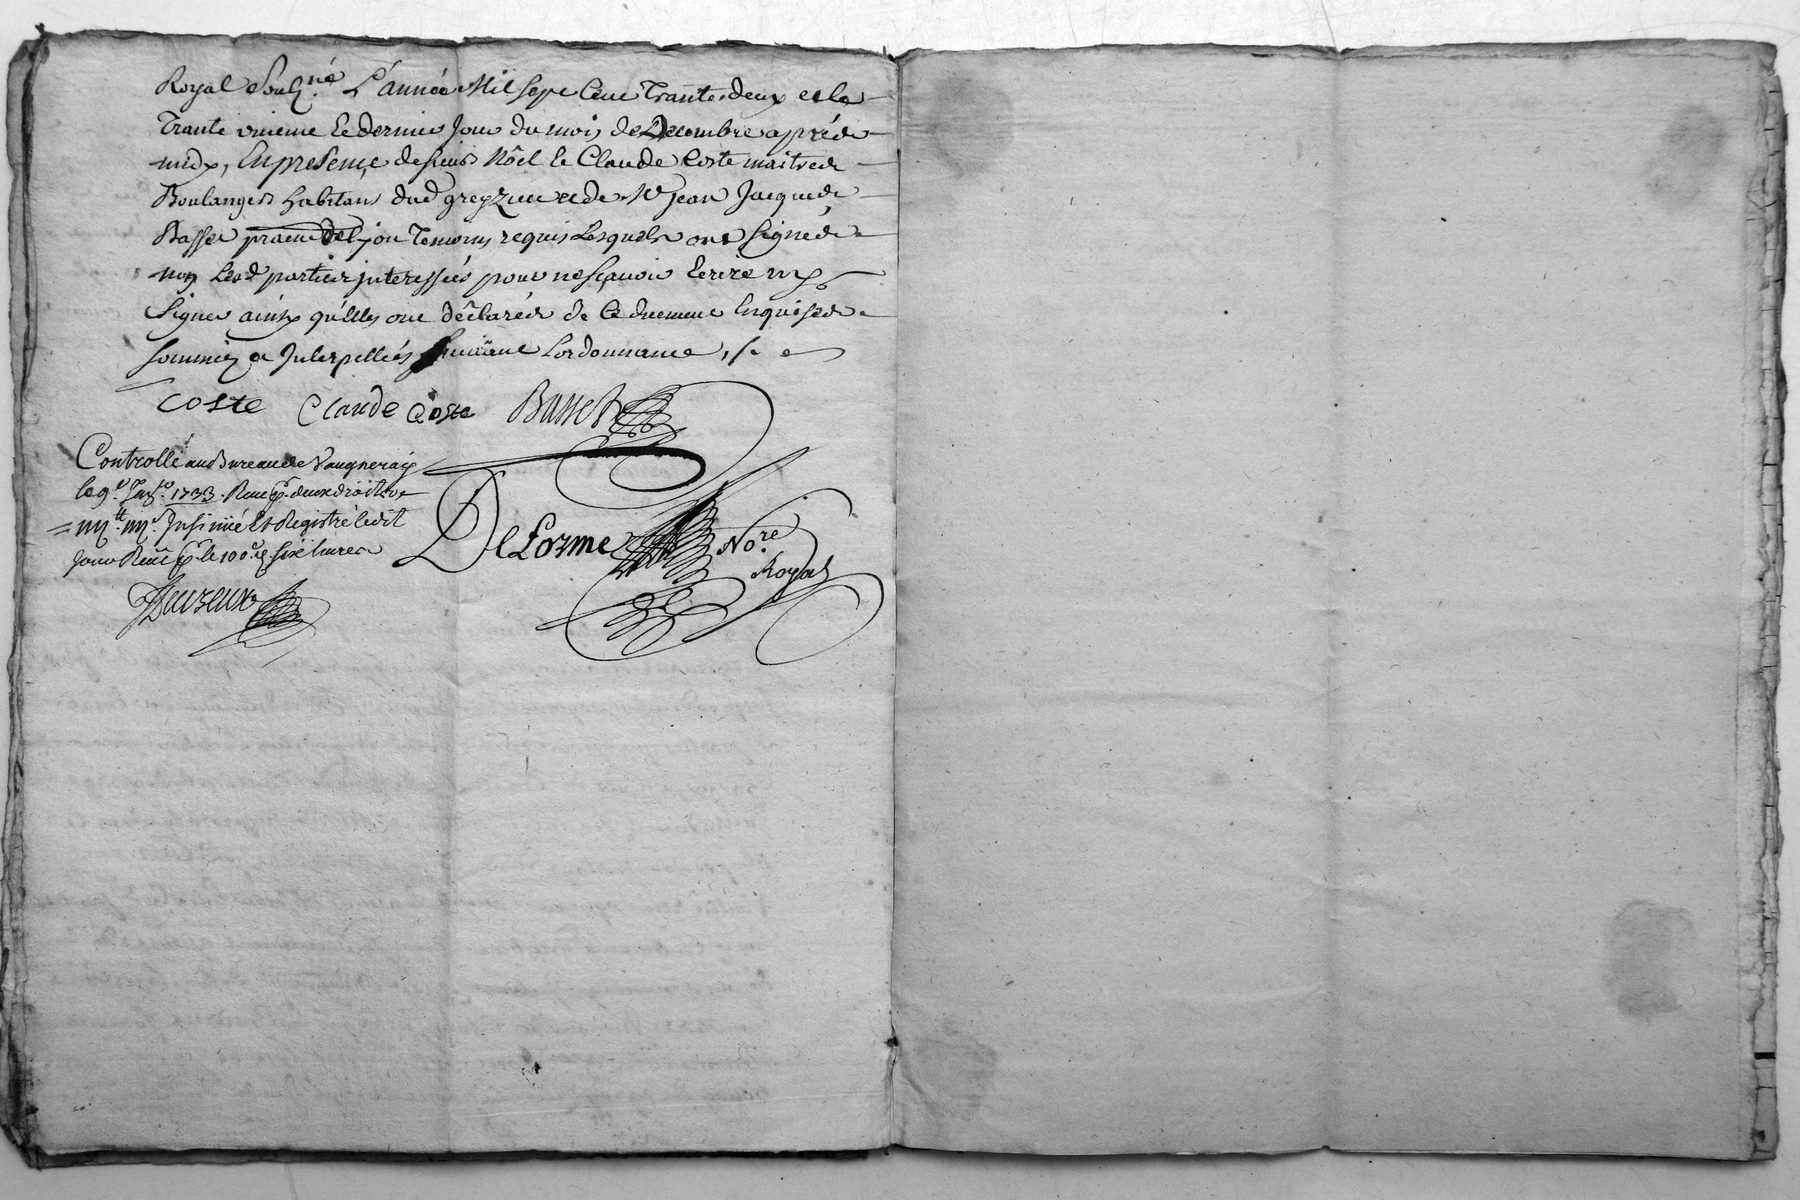 Royal Soubz.né L'année Mil sept Cent Trante deux et le
Trante unieme le dernier Jour du mois de Decembre aprés
midy, En presence de sieurs Nôel le Claude Coste maitres
Boulangers habitans dud greyzieu et de Mr Jean Jacques
Basset praticien Temoins requis Lesquels ont signé &
non Lesd parties interessées pour ne sçavoir Ecrire ny
signer ainsy qu'Elles ont déclaré de ce duement Enquises
sommées et Interpellées suivant Lordonnance,
COSTE Claude Coste Basset
Controllé au Bureau de Vaugneray
le 9e Janr 1733. Receu deux droits
Insinué Et Registré ledit
Jour Receu le 100e
Delorme Nore
Royal